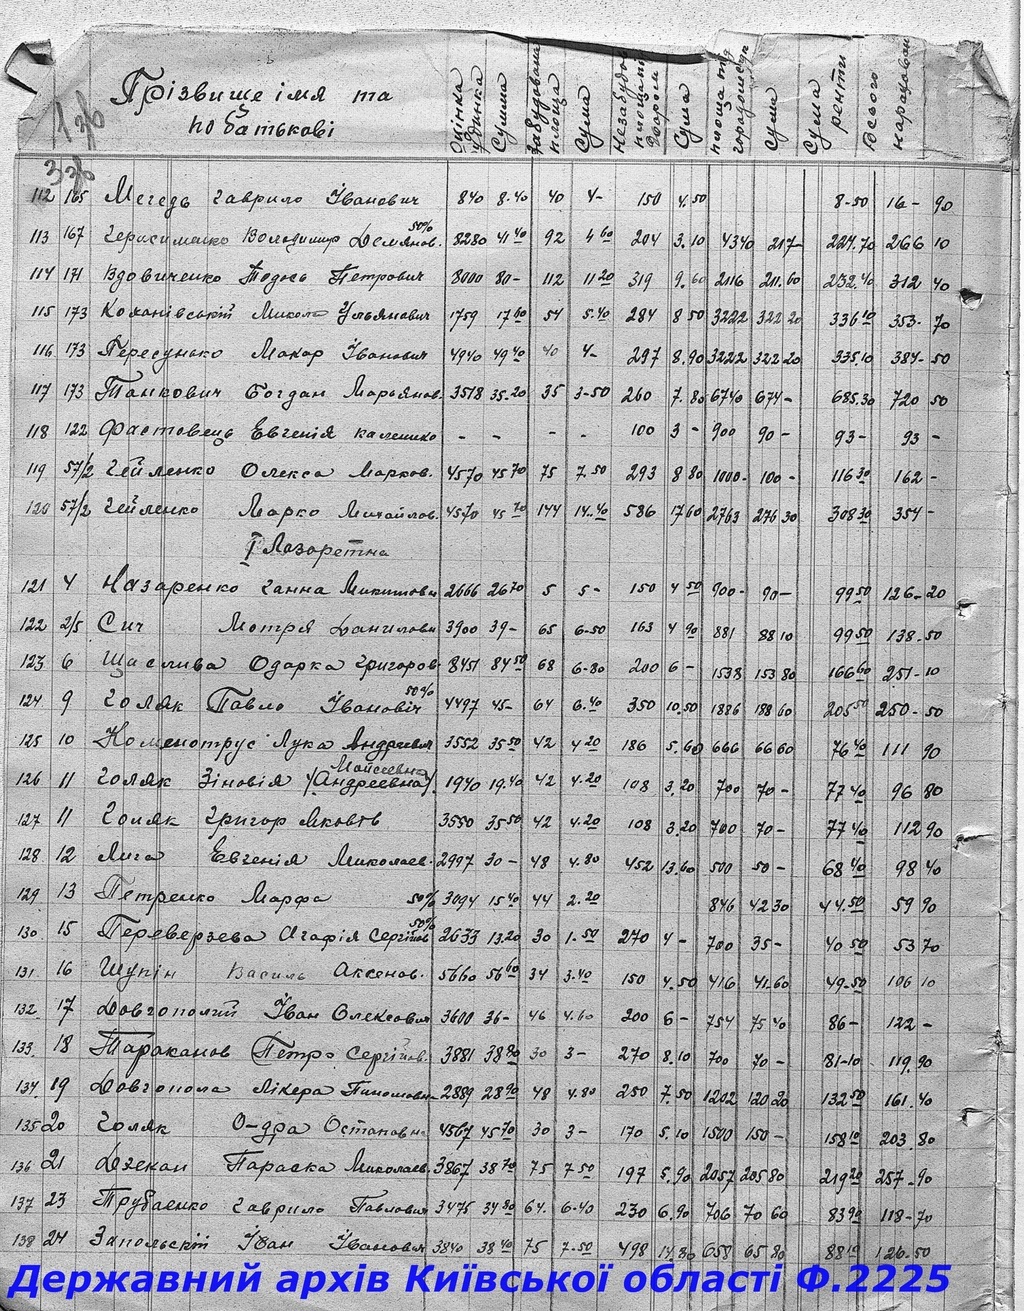 Прізвище імя та
по батькові
Оцінка будинка Сума Забудована площа Сума Незабудов площа під двором Сума площа під городом Сума Сума ренти Всього нараховано
1зв
3зв
112 165 Мегедь Гаврило Іванович 840 8-40 40 4- 150 4.50 8-50 16- 90
113 167 Герасименко Володимир Демянов. 50% 8280 41 40 92 4 60 204 3.10 4340 217- 224.70 266 10
114 171 Вдовиченко Тодось Петрович 8000 80- 112 11 20 319 9.60 2116 211.60 232.40 312 40
115 173 Коханівський Микола Ульянович 1759 17 60 54 5.40 284 8 50 3222 322 20 336 10 353- 70
116 173 Пересунько Макар Іванович 4940 49 40 40 4- 297 8.90 3222 322 20 335.10 384- 50
117 173 Танкович Богдан Марьянов. 3518 35.20 35 3-50 260 7.80 6740 674- 685.30 720 50
118 122 Фастовець Евгенія - - - - 100 3 - 900 90 - 93- 93 -
119 57/2 Гейленко Олекса Марков. 4570 45 70 75 7.50 293 8 80 1000- 100 - 116 30 162 -
120 57/2 Гейленко Марко Михайлов. 4570 45 70 144 14.40 586 17 60 2763 276 30 308 30 354 -
I Лазоретна
121 4 Назаренко Ганна Микитовн 2666 26 70 5 5- 150 4 50 900- 90- 99 50 126- 20
122 2/5 Сич Мотря Даниловн 3900 39- 65 6-50 163 4 90 881 88 10 99 50 138-50
123 6 Щаслива Одарка Григоров- 8451 84 50 68 6-80 200 6 - 1538 153 80 166 60 251-10
124 9 Голяк Павло Іванович 50% 4497 45- 64 6.40 350 10.50 1886 188 60 205 50 250-50
125 10 Номенотрус Лука Андреевич 3552 35 50 42 4 20 186 5.60 666 66 60 76 40 111 90
126 11 Голяк Зіновія Мойсеевна (Андреевна) 1940 19.40 42 4.20 108 3.20 700 70- 77 40 96 80
127 11 Голяк Григор Яковів 3550 35 50 42 4.20 108 3.20 700 70- 77 40 112 90
128 12 Лига Евгенія Миколаев- 2997 30- 48 4.80 452 13.60 500 50 - 68 40 98 40
129 13 Петренко Марфа 50% 3094 15 40 44 2.20 846 42 30 44.50 59 90
130. 15 Переверзева Агафія Сергіівн 50% 2633 13.20 30 1-50 270 4 - 700 35- 40 50 53 70
131. 16 Шупін Василь Аксенов. 5660 56 60 34 3.40 150 4.50 416 41.60 49-50 106 10
132. 17 Довгополий Іван Олексович 3600 36- 46 4.60 200 6 - 754 75 40 86- 122 -
133. 18 Тараканов Петро Сергійов. 3881 38 80 30 3- 270 8.10 700 70 - 81-10 119.90
134. 19 Довгопола Лікера 2889 28 90 48 4.80 250 7.50 1202 120 20 132 50 161.40
135 20 Голяк О-дра Остаповн 4567 45 70 30 3- 170 5.10 1500 150 - 158 10 203 80
136 21 Дзекан Параска Миколаев. 3867 38 70 75 7.50 197 5.90 2057 205 80 219 20 257-90
137 23 Трубаенко Гаврило Павлович 3475 34 80 64. 6-40 230 6.90 706 70 60 83 90 118-70
138 24 Запольскій Іван Іванович 3840 38 40 75 7-50 498 14.80 658 65 80 88 10 126-50
Державний архів Київської області Ф.2225